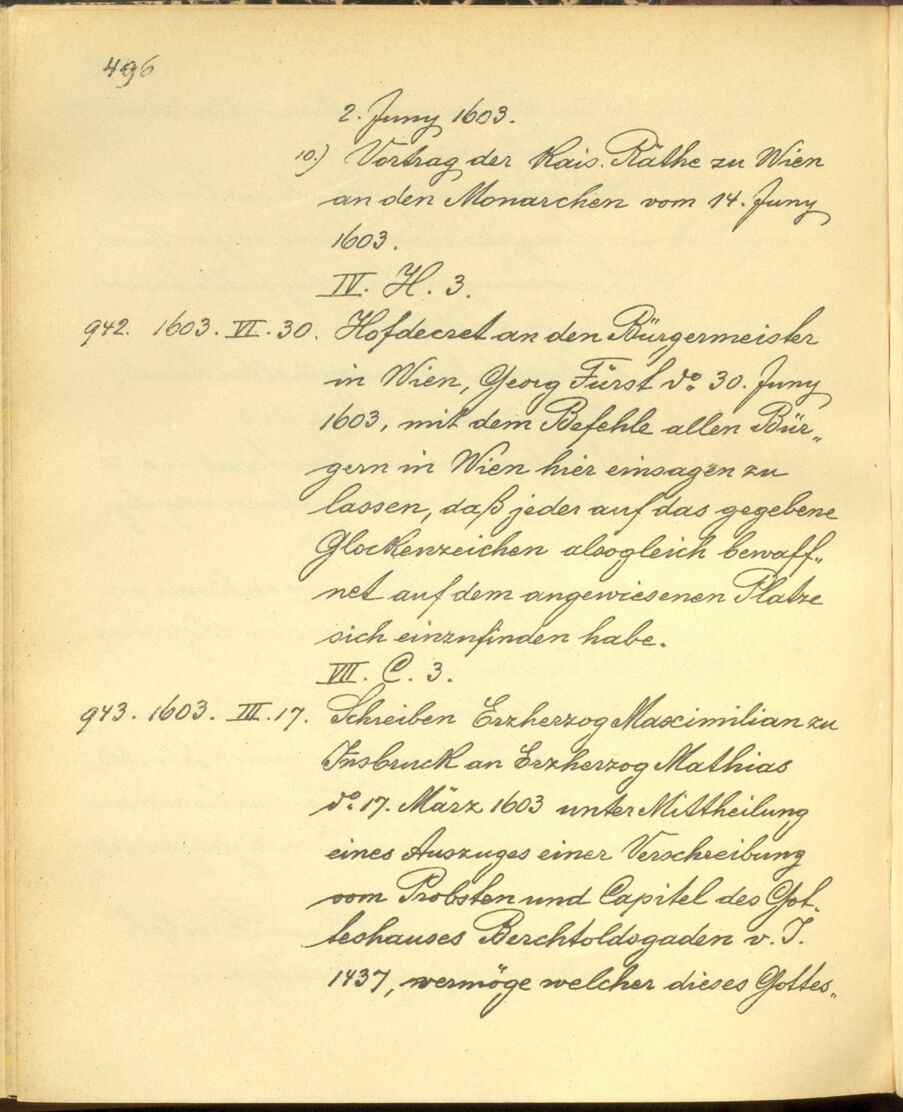 496
2. Juny 1603.
10.) Vortrag der Kais. Räthe zu Wien
an den Monarchen vom 14. Juny
1603.
IV. H. 3.
942. 1603. VI. 30. Hofdecret an den Bürgermeister
in Wien, Georg Fürst do. 30. Juny
1603, mit dem Befehle allen Bür„
gern in Wien hier einsagen zu
lassen, daß jeder auf das gegebene
Glockenzeichen alsogleich bewaff„
net auf dem angewiesenen Platze
sich einzufinden habe.
VIII. C. 3.
943. 1603. III. 17. Schreiben Erzherzog Maximilian zu
Insbruck an Erzherzog Mathias
do. 17. März 1603 unter Mittheilung
eines Auszuges einer Verschreibung
vom Probsten und Capitel des Got„
teshauses Berchtoldsgaden v. J.
1437, vermöge welcher dieses Gottes„